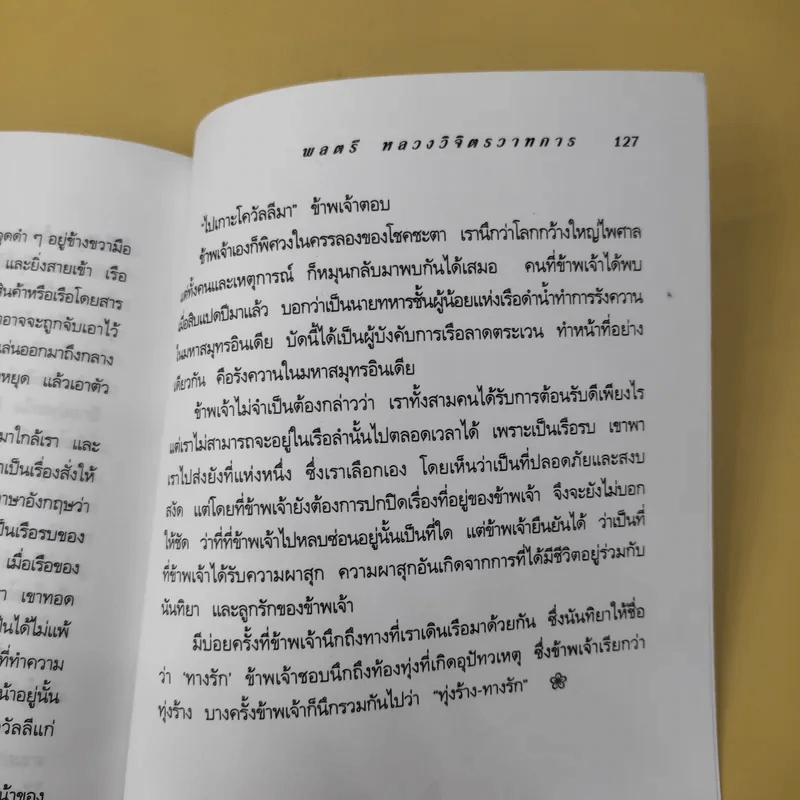 พลตรี หลวงวิจิตรวาทการ 127
"ไปเกาะโควัลลีมา" ข้าพเจ้าตอบ
ข้าพเจ้าเองก็พิศวงในครรลองของโชคชะตา เรานึกว่าโลกกว้างใหญ่ไพศาล
แต่ทั้งคนและเหตุการณ์ ก็หมุนกลับมาพบกันได้เสมอ คนที่ข้าพเจ้าได้พบ
เมื่อสิบแปดปีมาแล้ว บอกว่าเป็นนายทหารชั้นผู้น้อยแห่งเรือดำน้ำทำการรังควาน
ในมหาสมุทรอินเดีย บัดนี้ได้เป็นผู้บังคับการเรือลาดตระเวน ทำหน้าที่อย่าง
เดียวกัน คือรังควานในมหาสมุทรอินเดีย
ข้าพเจ้าไม่จำเป็นต้องกล่าวว่า เราทั้งสามคนได้รับการต้อนรับดีเพียงไร
แต่เราไม่สามารถจะอยู่ในเรือลำนั้นไปตลอดเวลาได้ เพราะเป็นเรือรบ เขาพา
เราไปส่งยังที่แห่งหนึ่ง ซึ่งเราเลือกเอง โดยเห็นว่าเป็นที่ปลอดภัยและสงบ
สงัด แต่โดยที่ข้าพเจ้ายังต้องการปกปิดเรื่องที่อยู่ของข้าพเจ้า จึงจะยังไม่บอก
ให้ชัด ว่าที่ที่ข้าพเจ้าไปหลบซ่อนอยู่นั้นเป็นที่ใด แต่ข้าพเจ้ายืนยันได้ ว่าเป็นที่
ที่ข้าพเจ้าได้รับความผาสุก ความผาสุกอันเกิดจากการที่ได้มีชีวิตอยู่ร่วมกับ
นันทิยา และลูกรักของข้าพเจ้า
มีบ่อยครั้งที่ข้าพเจ้านึกถึงทางที่เราเดินเรือมาด้วยกัน ซึ่งนันทิยาให้ชื่อ
ว่า 'ทางรัก' ข้าพเจ้าชอบนึกถึงท้องทุ่งที่เกิดอุปัทวเหตุ ซึ่งข้าพเจ้าเรียกว่า
ทุ่งร้าง บางครั้งข้าพเจ้าก็นึกรวมกันไปว่า "ทุ่งร้าง-ทางรัก"
ดำ ๆ อยู่ข้างขวามือ
และยิ่งสายเข้า เรือ
สินค้าหรือเรือโดยสาร
อาจจะถูกจับเอาไว้
เล่นออกมาถึงกลาง
หยุด แล้วเอาตัว
มาใกล้เรา และ
เป็นเรื่องสั่งให้
ภาษาอังกฤษว่า
เป็นเรือรบของ
เมื่อเรือของ
เขาทอด
เป็นได้ไม่แพ้
ที่ทำความ
อยู่นั้น
วัลลีแก่
ของ